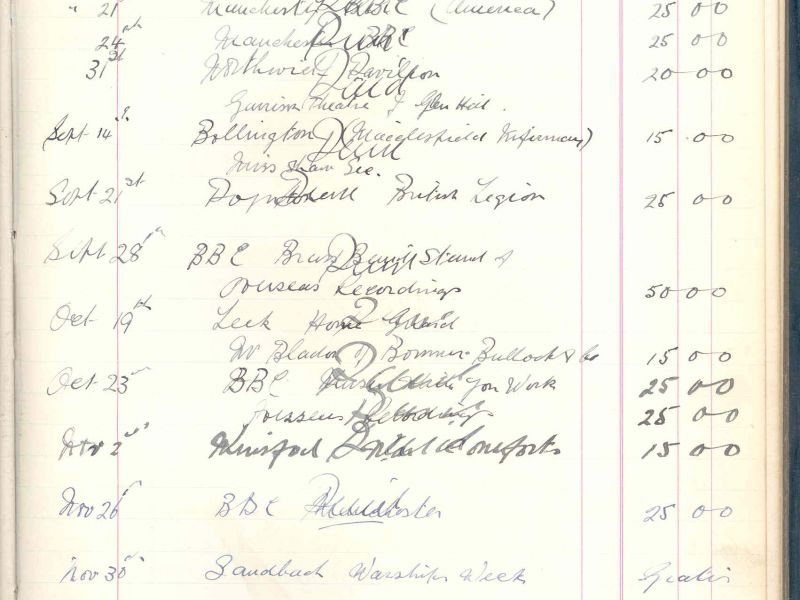 " 21st Manchester BBC (America) 25 0 0
24th Manchester BBC 25 0 0
31st Northwich Pavilion 20 0 0
Garrison Theatre Glen Hill.
Sept 14th Bollington (Macclesfield Infirmary) 15 0 0
Miss Shaw Sec.
Sept 21st British Legion 25 0 0
Sept 28th BBC Brass Band Stand &
Overseas Recordings 50 0 0
Oct 19th Leek Home Guard
Mr Bladon of Bonner Bullock & Co 15 0 0
Oct 23rd BBC Music While You Work 25 0 0
Overseas Recordings 25 0 0
Nov 2nd Comforts 15 0 0
Nov 26th BBC Manchester 25 0 0
Nov 30th Sandbach Warships Week Gratis